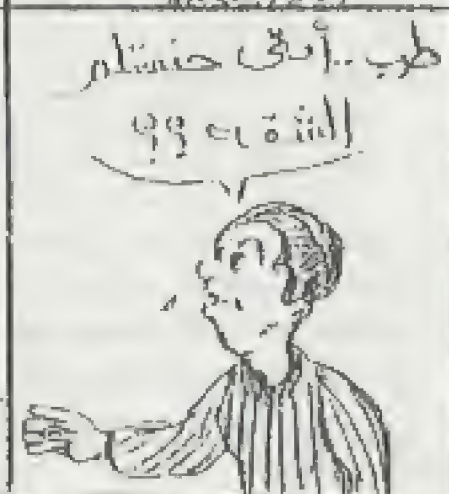 طيب .. أمتى حنستلم
الشقة ؟؟